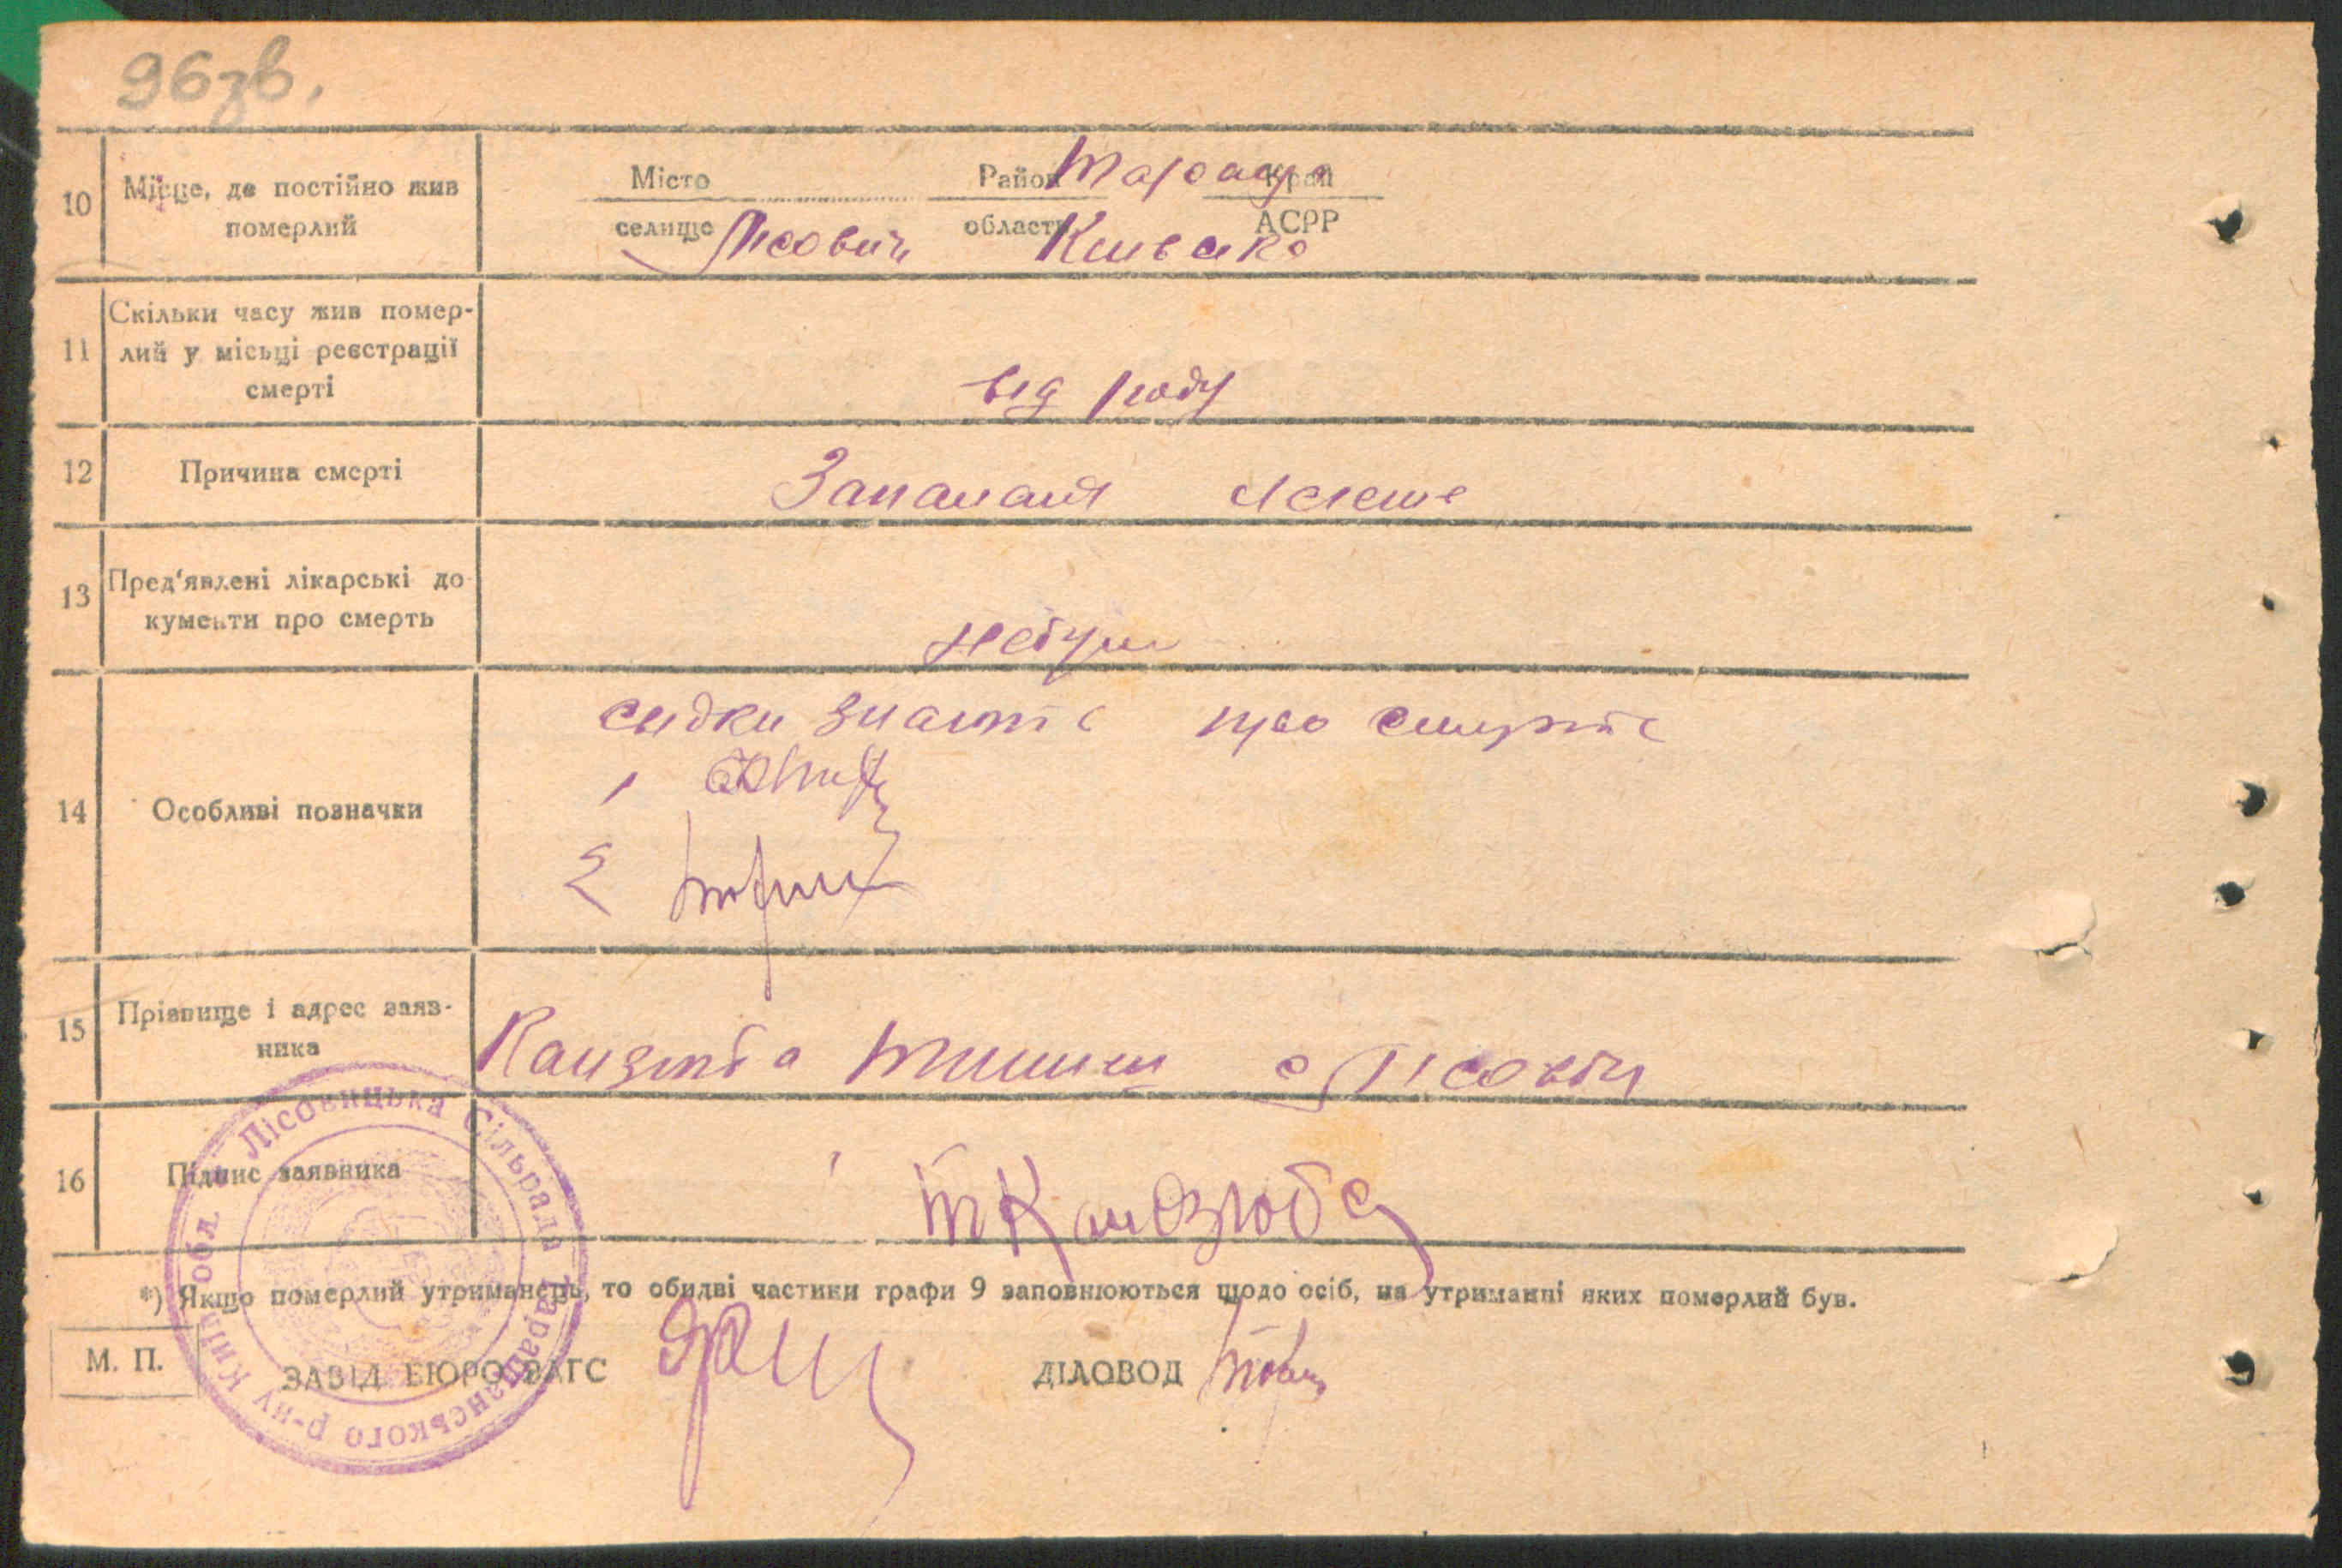 96зв.
10 Місце, де постійно жив померлий
Місто Район Тараща Край
селище Лісовичі області Київська АСРР
11 Скільки часу жив помер-
лий у місьці реєстрації
смерті
від роду
12 Причина смерті
Запалання легень
13 Пред'явлені лікарські до
кументи про смерть
небули
14 Особливі позначки
свідки знають про смерть
1
2
15 Прізвище і адрес заяв-
ника
Кандзюба с Лісовичі
16 Підпис заявника
Т Кандзюба
*) Якщо померлий утриманець, то обидві частини графи 9 заповнюються щодо осіб, на утриманні яких померлий був.
М. П.
ЗАВІД. БЮРО ЗАГС
ДІЛОВОД
Лісовицька Сільрада Таращанського р-ну Київ обл.